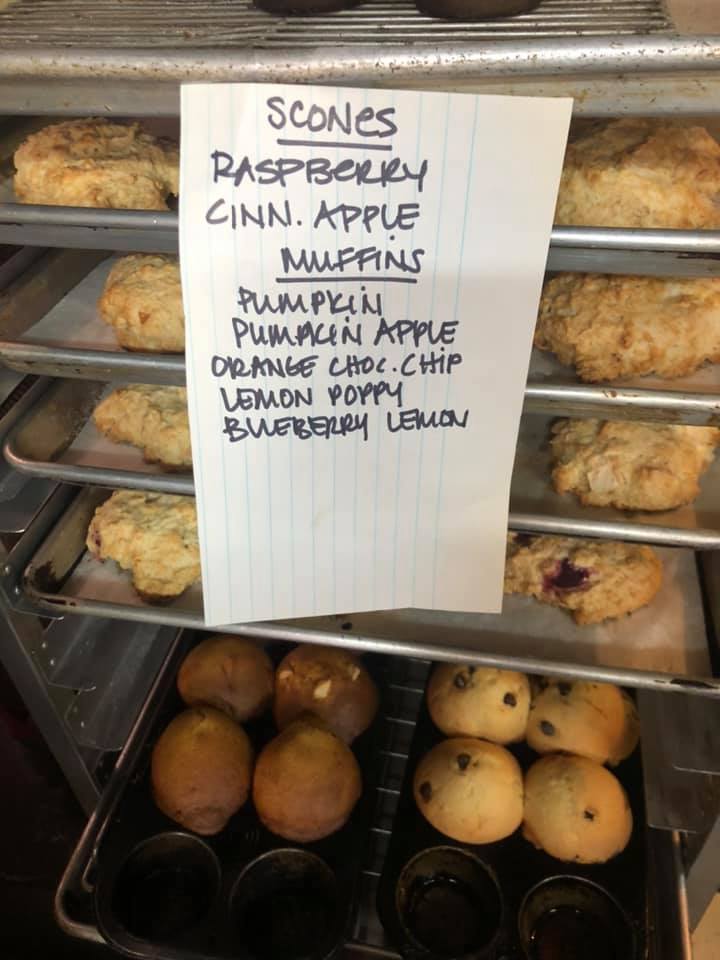 SCONES
RASPBERRY
CINN. APPLE
MUFFINS
PUMPKIN
PUMPKIN APPLE
ORANGE CHOC. CHIP
LEMON POPPY
BLUEBERRY LEMON